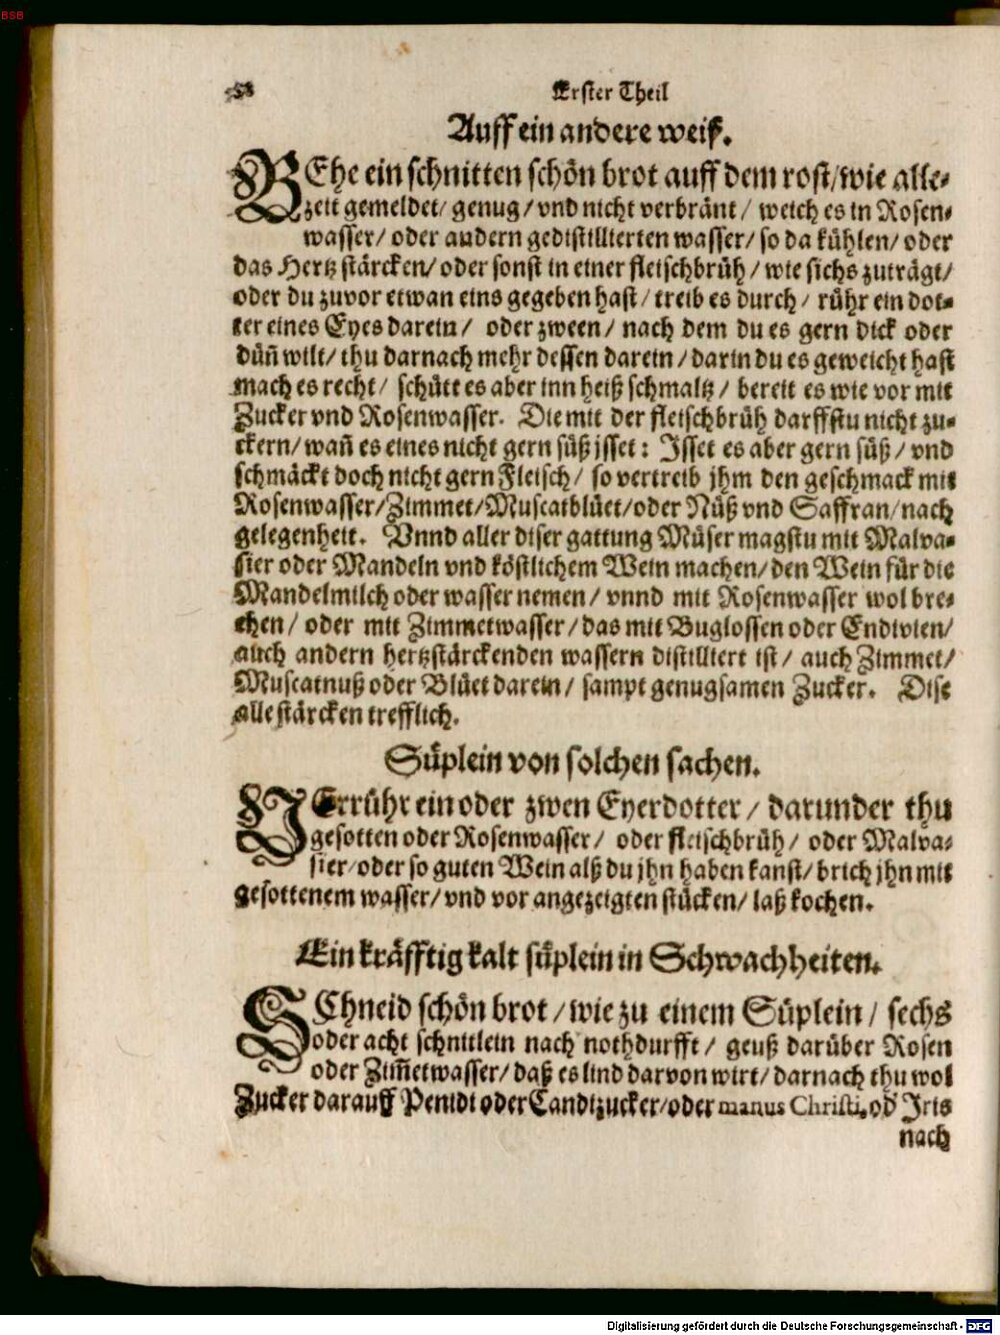 BSB
58 Erster Theil
Auff ein andere weiß.
BEhe ein schnitten schön brot auff dem rost/wie alle-
zeit gemeldet/ genug/ vnd nicht verbränt/ weich es in Rosen-
wasser/ oder andern gedistillierten wasser/ so da kühlen/ oder
das Hertz stärcken/ oder sonst in einer fleischbrüh/ wie sichs zuträgt/
oder du zuvor etwan eins gegeben hast/ treib es durch/ rühr ein dot-
ter eines Eyes darein/ oder zween/ nach dem du es gern dick oder
düñ wilt/ thu darnach mehr dessen darein/ darin du es geweicht hast
mach es recht/ schütt es aber inn heiß schmaltz/ bereit es wie vor mit
Zucker vnd Rosenwasser. Die mit der fleischbrüh darffstu nicht zu-
ckern/ wañ es eines nicht gern süß isset: Isset es aber gern süß/ vnd
schmäckt doch nicht gern Fleisch/ so vertreib jhm den geschmack mit
Rosenwasser/Zimmet/Muscatblüet/oder Nüß vnd Saffran/nach
gelegenheit. Vnnd aller diser gattung Müser magstu mit Malva-
sier oder Mandeln vnd köstlichem Wein machen/ den Wein für die
Mandelmilch oder wasser nemen/ vnnd mit Rosenwasser wol bre-
chen/ oder mit Zimmetwasser/ das mit Buglossen oder Endivien/
auch andern hertzstärckenden wassern distilliert ist/ auch Zimmet/
Muscatnuß oder Blüet darein/ sampt genugsamen Zucker. Dise
alle stärcken trefflich.
Süplein von solchen sachen.
ZErrühr ein oder zwen Eyerdotter/ darunder thu
gesotten oder Rosenwasser/ oder fleischbrüh/ oder Malva-
sier/ oder so guten Wein alß du jhn haben kanst/ brich jhn mit
gesottenem wasser/ vnd vor angezeigten stücken/ laß kochen.
Ein kräfftig kalt süplein in Schwachheiten.
SChneid schön brot/ wie zu einem Süplein/ sechs
oder acht schnitlein nach nothdurfft/ geuß darüber Rosen
oder Zim̃etwasser/ daß es lind darvon wirt/ darnach thu wol
Zucker darauff Penidi oder Candizucker/ oder manus Christi, od' Iris
nach
Digitalisierung gefördert durch die Deutsche Forschungsgemeinschaft - DFG